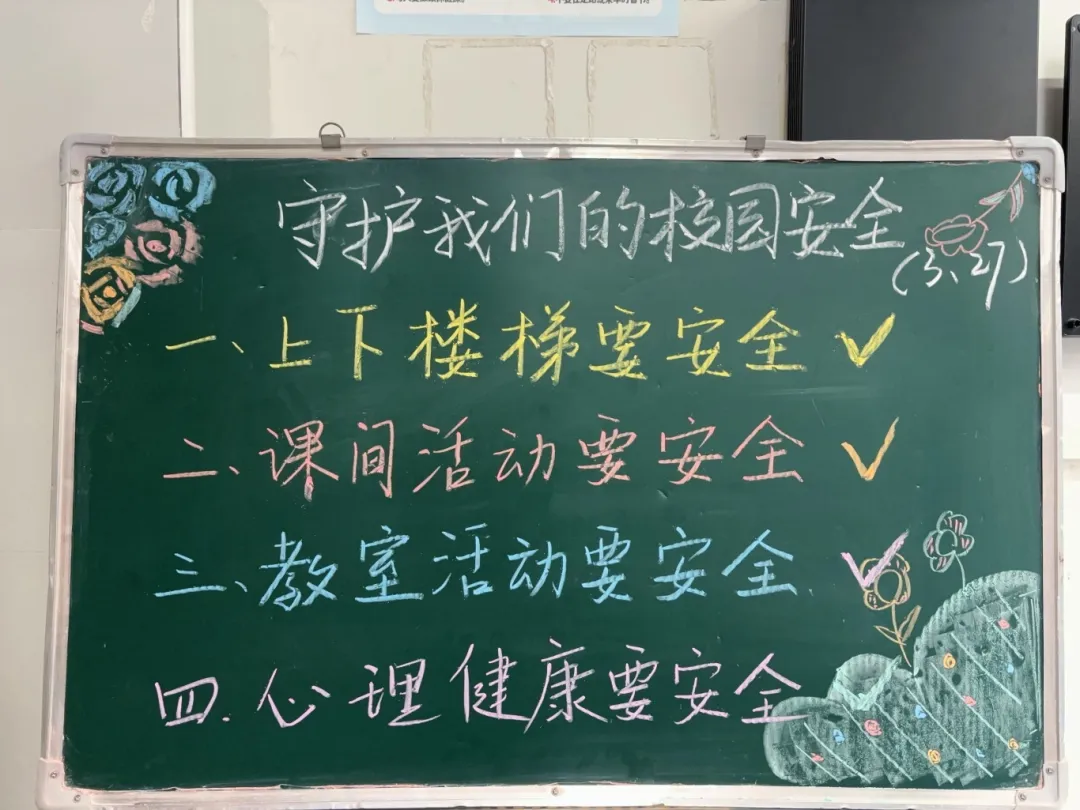 守护我们的校园安全
(3.27)
一、上下楼梯要安全 ✓
二、课间活动要安全 ✓
三、教室活动要安全. ✓
四.心理健康要安全